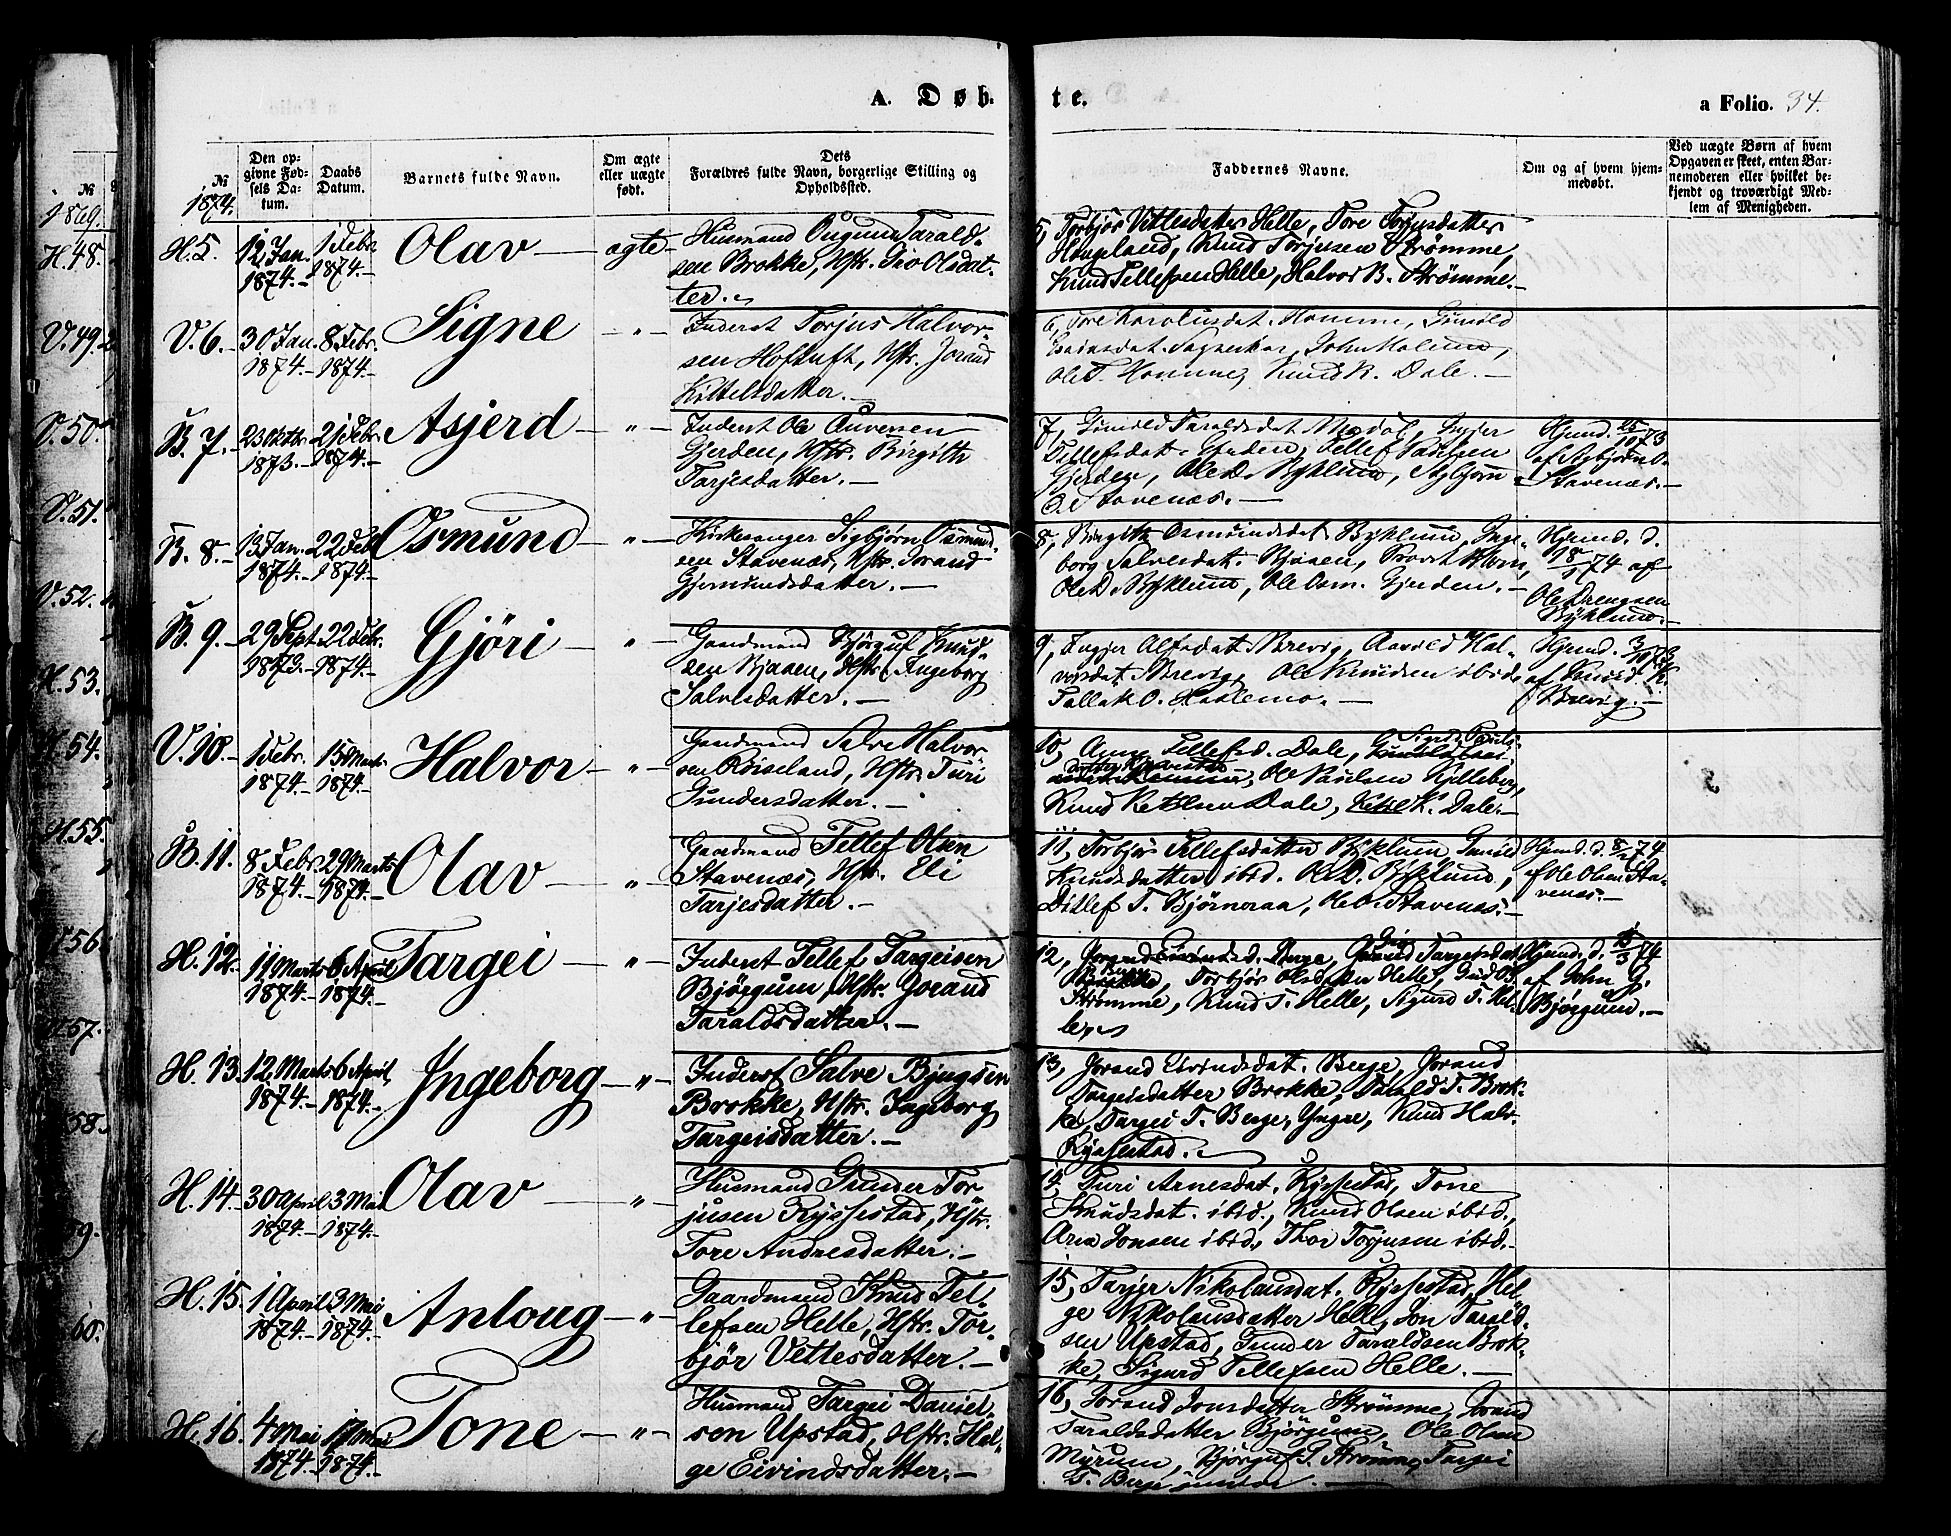 A. Døb-
te.
a Folio. 34.
№
1869.
H. 48.
V. 49.
V. 50.
V. 51.
V. 52.
H. 53.
H. 54.
H. 55.
56.
57.
58.
59.
60.
№
1874.
Den op-
givne Fød-
sels Da-
tum.
Daabs
Datum.
Barnets fulde Navn.
Om ægte
eller uægte
født.
Dets
Forældres fulde Navn, borgerlige Stilling og
Opholdssted.
Faddernes Navne.
Om og af hvem hjem-
medøbt.
Ved uægte Børn af hvem
Opgaven er skeet, enten Bar-
nemoderen eller hvilket be-
kjendt og troværdigt Med-
lem af Menigheden.
H. 5.
12 Jan.
1874.
1 Febr
1874.
Olav
ægte
Husmand Ougun Tarald-
sen Brokke, Hstr. Gro Olsdat-
ter.
5, Torbjør Vittesdatter Helle, Tore Torjusdatter
Hougeland, Knud Torjusen Strømme,
Knud Tellefsen Helle, Halvor B. Strømme.
V. 6.
30 Jan.
1874.
8 Febr.
1874.
Signe
"
Inderst Torjus Halvor-
sen Hoftuft, Hstr. Jorand
Kittelsdatter.
6, Tore Karolusdat. Homme, Gunild
John
Ole T. Homme, Knud K. Dale.
B. 7.
23 Oktbr.
1873.
21 Febr.
1874.
Asjerd
"
Inderst Ole Ouversen
Gjerden, Hstr. Birgith
Tarjesdatter.
7, Gunild Taraldsdat. Ingjer
Tellefsdat. Gjerden, Tellef Paulsen
Gjerden, Ole D. Byklum, Asbjørn
O. Stavenæs.
Hjemd. 25/10 73
af Asbjørn O.
Stavenæs.
B. 8.
13 Jan.
1874.
22 Febr
1874.
Osmund
"
Kirkesanger Sigbjørn Osmund-
sen Stavenæs, Hstr. Jorand
Gjermundsdatter.
8, Birgith Osmundsdat. Byklum, Inge-
borg Salvesdat. Bjaaen,
Ole D. Byklum, Ole Osm. Gjerden.
Hjemd. d.
18/1 74 af
Ole Drengsen
Byklum.
B. 9.
29 Sept.
1873.
22 Febr.
1874.
Gjöri
"
Gaardmand Bjørguf Knud-
sen Bjaaen, Hstr. Ingeborg
Salvesdatter.
9, Ingjer Alfsdat. Brevig, Aavild Hal-
vorsdat. Brevig, Ole Knudsen ibid.
Tallak O. Hoslemo.
Hjemd. 3/10 73
af Knud K.
Brevig.
V. 10.
1 Febr.
1874.
15 Marts
1874.
Halvor
"
Gaardmand Salve Halvor-
sen Röiseland, Hstr. Turi
Gundersdatter.
10, Anne Tellefsd. Dale,
Ole Paulsen Kjelleberg,
Knud Ketelsen Dale, Ketel K. Dale.
B. 11.
8 Febr.
1874.
29 Marts
1874.
Olav
"
Gaardmand Tellef Olsen
Stavenæs, Hstr. Eli
Tarjesdatter.
11, Torbjør Tellefsdatter Byklum, Gunild
Knudsdatter ibid. Ole D. Byklum,
Ditlef T. Bjørneraa, Ole O. Stavenæs.
Hjemd. d. 8/2 74
af Ole Olsen Sta-
venæs.
H. 12.
11 Marts
1874.
6 April
1874.
Targei
"
Inderst Tellef Targeisen
Björgum, Hstr. Jorand
Taraldsdatter.
12, Jorand Eivindsd. Berge, Targeisdat.
Torbjör Olsdatter Helle, Gud Ol.
Strømme, Knud T. Helle, Sigurd T. Hel-
le,
Hjemd. d. 15/3 74
af John G.
Björgum.
H. 13.
12 Marts
1874.
6 April
1874.
Ingeborg
"
Inderst Salve Bjugsen
Brokke, Hstr. Ingeborg
Targeisdatter.
13, Jorand Eivindsdat. Berge, Jorand
Targeisdatter Brokke, Tarald T. Brok-
ke, Targei T. Berge, Yngre, Knud Halv.
Rysfestad.
H. 14.
30 April
1874.
3 Mai
1874.
Olav
"
Husmand Gunder Tor-
jusen Rysfestad, Hstr.
Tore Andresdatter.
14, Turi Arnesdat. Rysfestad, Tone
Knudsdat. ibid., Knud Olsen ibid,
Aren Jonsen ibid., Thor Torjusen ibid.
H. 15.
1 April
1874.
3 Mai
1874.
Anloug
"
Gaardmand Knud Tel-
lefsen Helle, Hstr. Tor-
bjør Vettesdatter.
15, Tarjer Nikolausdat. Rysfestad, Hel-
ge Nikolausdatter Helle, Jon Tarald-
sen Upstad, Gunder Taraldsen Brok-
ke, Sigurd Tellefsen Helle.
H. 16.
4 Mai
1874.
17 Mai
1874.
Tone
"
Husmand Targei Daniel-
sen Upstad, Hstr. Hel-
ge Eivindsdatter.
16, Jorand Jonsdatter Strømme, Jorand
Taraldsdatter Björgum, Ole Olsen
Myrum, Bjørguf S. Strømme, Targei
T. Berge